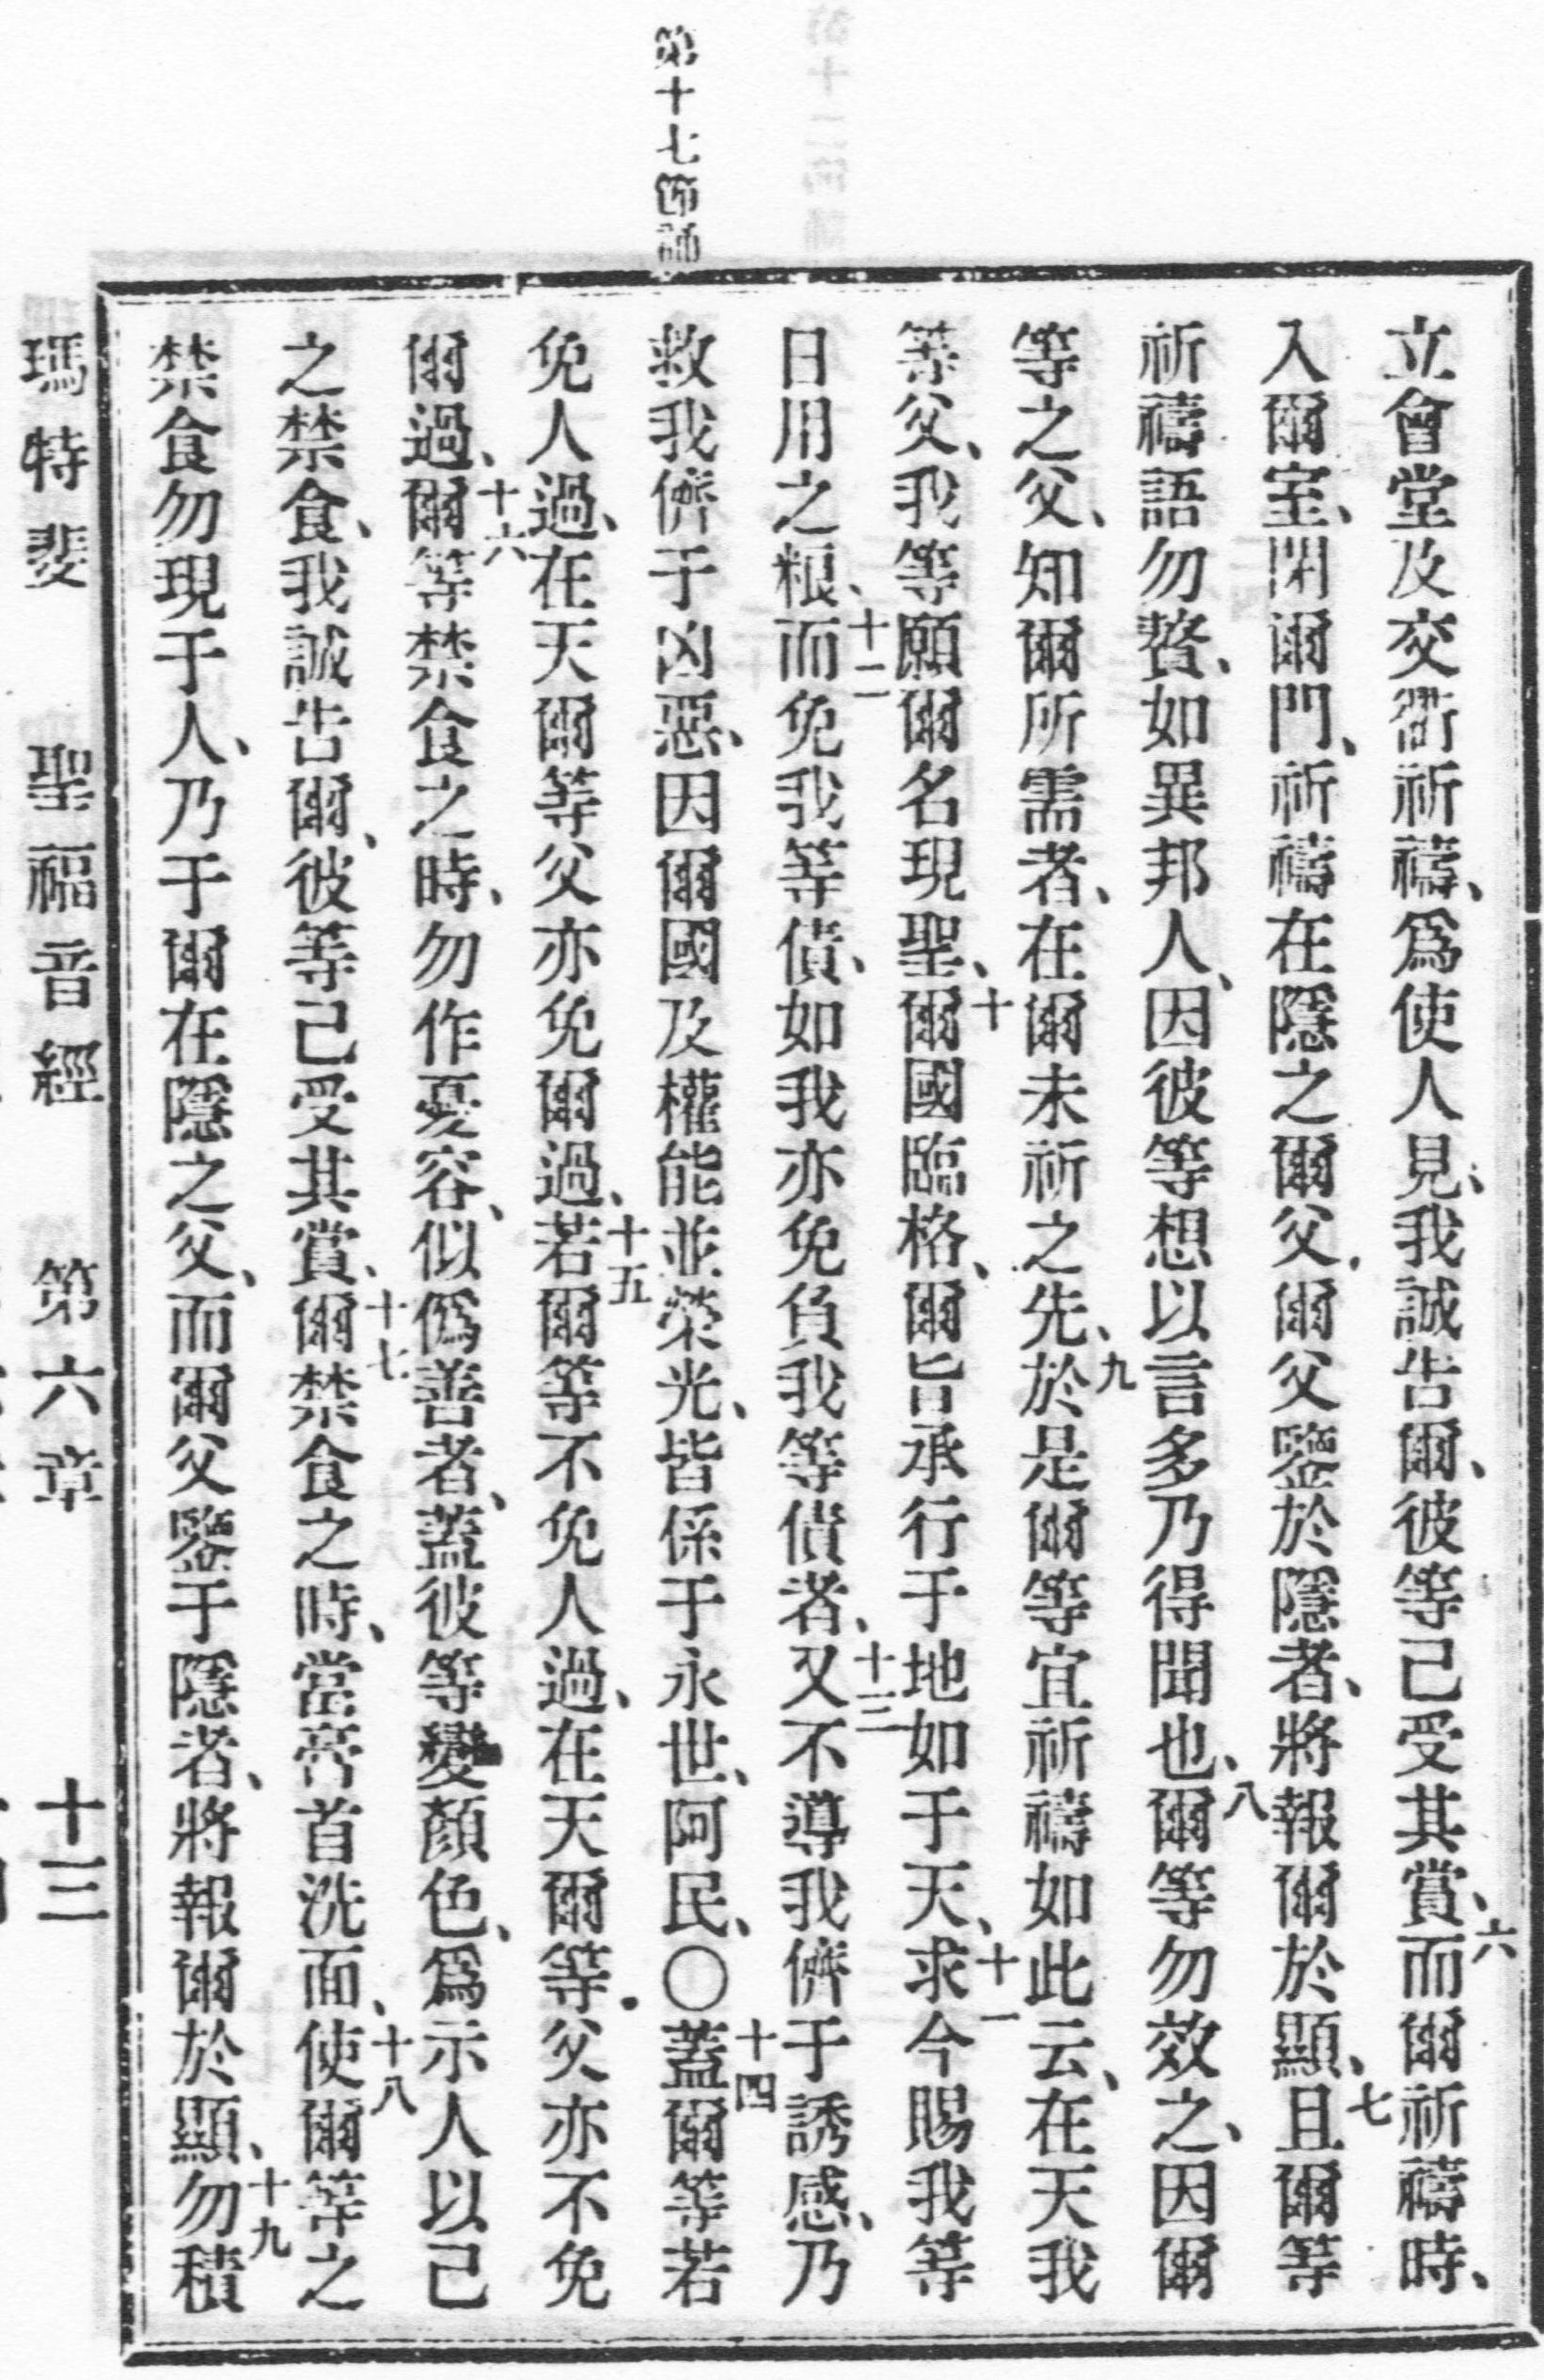 第十七節誦
立會堂及交衢祈禱、爲使人見、我誠告爾、彼等已受其賞、六而爾祈禱時、
入爾室、閉爾門、祈禱在隱之爾父、爾父鑒於隱者、將報爾於顯、七且爾等
祈禱語勿贅、如異邦人、因彼等想以言多乃得聞也、八爾等勿效之、因爾
等之父、知爾所需者、在爾未祈之先、九於是爾等宜祈禱如此云、在天我
等父、我等願爾名現聖、十爾國臨格、爾旨承行于地如于天、十一求今賜我等
日用之粮、十二而免我等債、如我亦免負我等債者、十三又不導我儕于誘惑、乃
救我儕于凶惡、因爾國及權能並榮光、皆係于永世、阿民、〇十四蓋爾等若
免人過、在天爾等父亦免爾過、十五若爾等不免人過、在天爾等父亦不免
爾過、十六爾等禁食之時、勿作憂容、似僞善者、蓋彼等變顏色、爲示人以己
之禁食、我誠告爾、彼等已受其賞、十七爾禁食之時、當膏首洗面、十八使爾等之
禁食勿現于人、乃于爾在隱之父、而爾父鑒于隱者、將報爾於顯、十九勿積
瑪特斐 聖福音經 第六章 十三